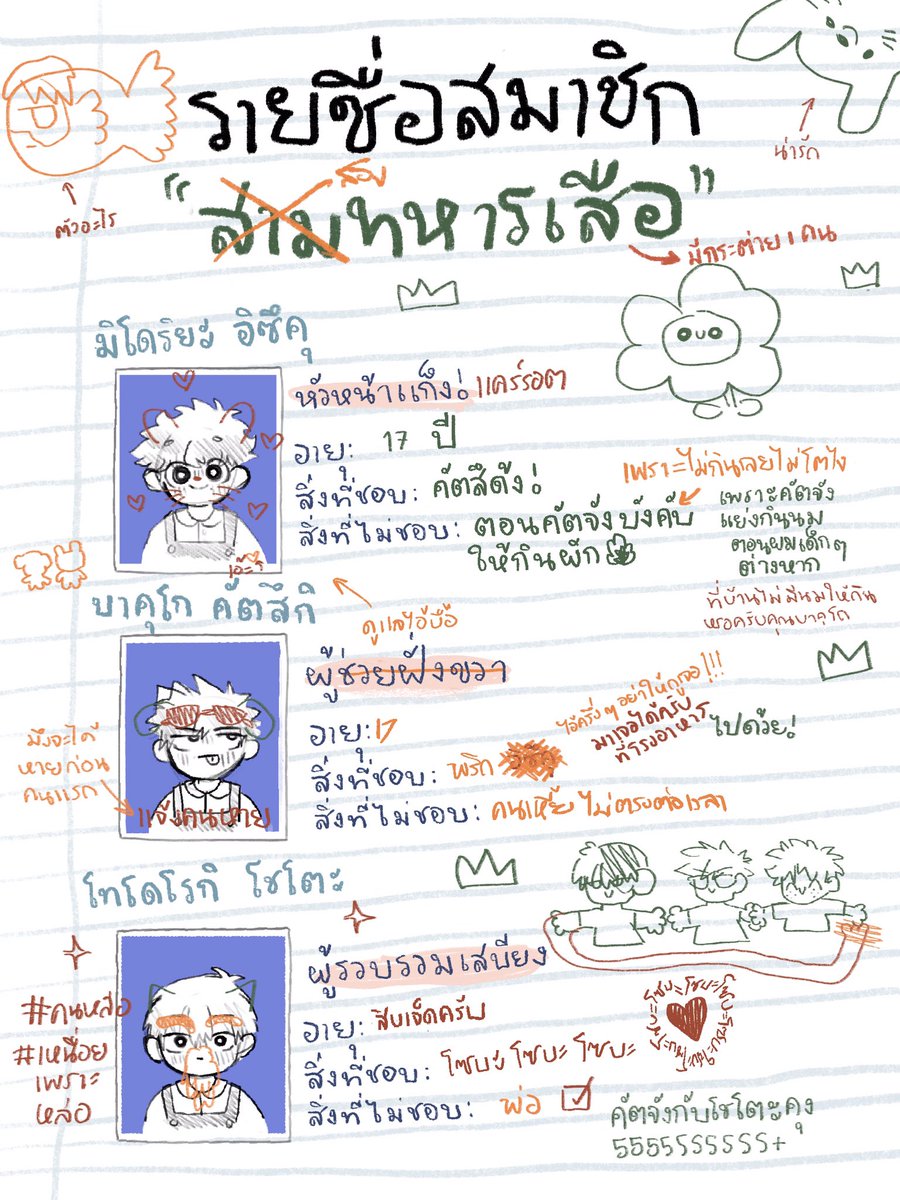 รายชื่อสมาชิก
น่ารัก
ตัวอะไร
สอง
"สามทหารเสือ"
มีกระต่าย 1 คน
มิโดริยะ อิซึคุ
หัวหน้าแก็ง! แคร์รอต
อายุ: 17 ปี
สิ่งที่ชอบ: คัตสึดัง!
สิ่งที่ไม่ชอบ: ตอนคัตจังบังคับ
ให้กินผัก
เพราะไม่กินเลยไม่โตไง
เพราะคัตจัง
แย่งกินนม
ตอนผมเด็กๆ
ต่างหาก
ที่บ้านไม่มีนมให้กิน
หรอครับคุณบาคุโก
บาคุโก คัตสึกิ
ดูแลไอ้บื้อ
ผู้ช่วยฝั่งขวา
อายุ: 17
สิ่งที่ชอบ: พริก
สิ่งที่ไม่ชอบ: คนเหี้ย ไม่ตรงต่อเวลา
ไอ้ครึ่งๆ อย่าให้กูเจอ!!!
มาเจอได้ครับ
ที่โรงอาหาร
ไปด้วย!
มึงจะได้
หายก่อน
คนแรก
แจ้งคนหาย
โทโดโรกิ โชโตะ
ผู้รวบรวมเสบียง
อายุ: สิบเจ็ดครับ
สิ่งที่ชอบ: โซบะ โซบะ โซบะ
สิ่งที่ไม่ชอบ: พ่อ
#คนหล่อ
#เหนื่อย
เพราะ
หล่อ
คัตจังกับโชโตะคุง
5555555555+